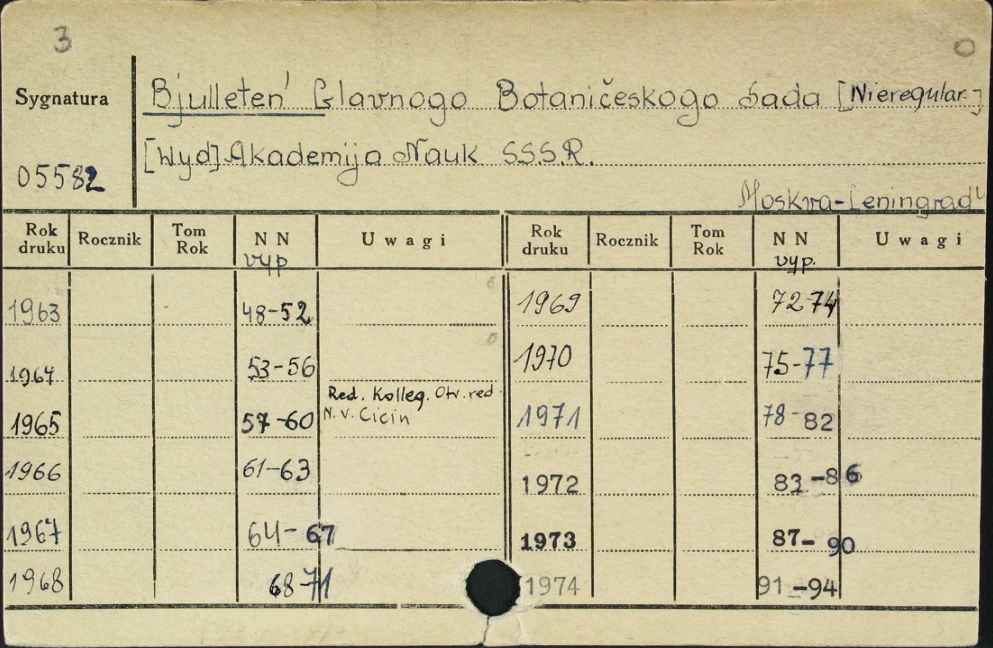 3
0
Sygnatura
Bjulleten' Glavnogo Botaničeskogo Sada [Nieregular.]
[Wyd] Akademija Nauk SSSR.
05582
Moskwa-Leningrad
Rok druku Rocznik Tom Rok N N Uwagi Rok druku Rocznik Tom Rok N N Uwagi
vyp vyp.
1963 48-52 1969 72-74
1964 53-56 1970 75-77
Red. Kolleg. Otv. red.
1965 57-60 N. V. Cicin 1971 78-82
1966 61-63 1972 83-86
1967 64-67 1973 87-90
1968 68-71 1974 91-94